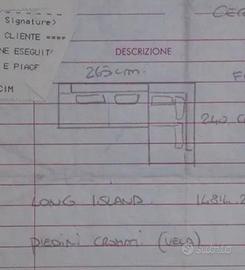 Signature>
CLIENTE ====
NE ESEGUIT
E PIACE
CIM
CE
DESCRIZIONE
265 cm.
240 C
LONG ISLAND 1484.2
PIEDINI CROMATI (VELA)
subito